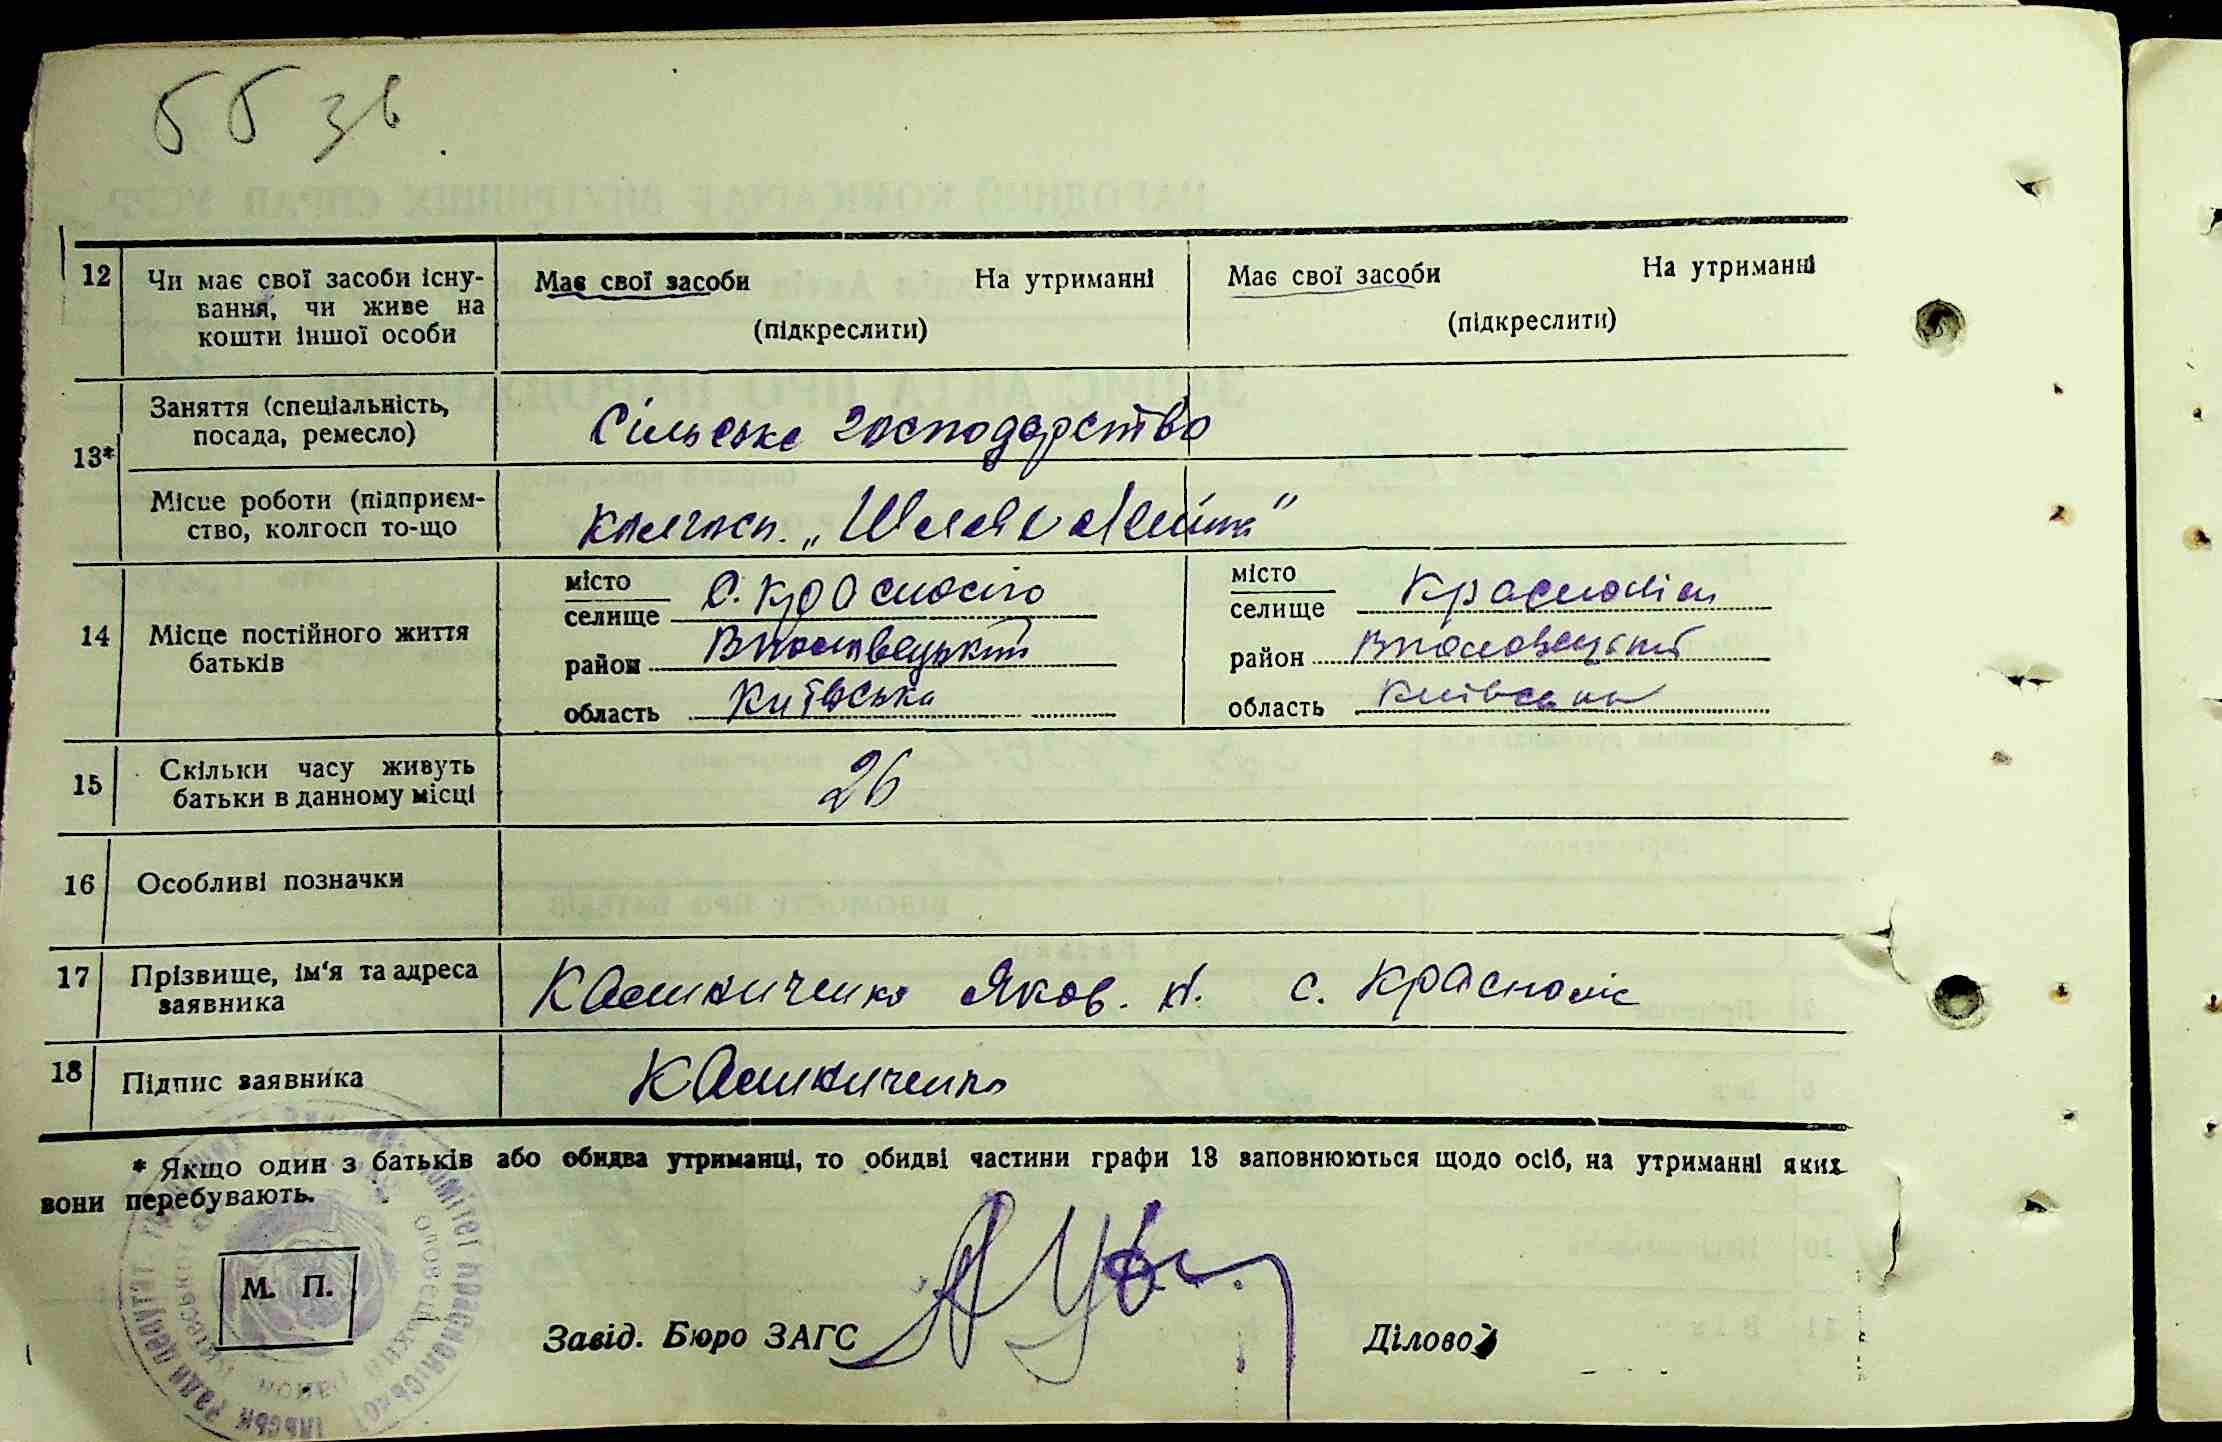 12 Чи має свої засоби існу-
вання, чи живе на
кошти іншої особи
Має свої засоби На утриманні
(підкреслити)
Має свої засоби На утриманні
(підкреслити)
13*
Заняття (спеціальність,
посада, ремесло)
Сільське господарство
Місце роботи (підприєм-
ство, колгосп то-що
колгосп. „Шлях
14 Місце постійного життя
батьків
місто
селище с.
район
область Київська
місто
селище Краснопіл
район
область Київська
15 Скільки часу живуть
батьки в данному місці
26
16 Особливі позначки
17 Прізвище, ім'я та адреса
заявника
Яков. с.
18 Підпис заявника
* Якщо один з батьків або обидва утриманці, то обидві частини графи 13 заповнюються щодо осіб, на утриманні яких
вони перебувають.
М. П.
Завід. Бюро ЗАГС
Діловод